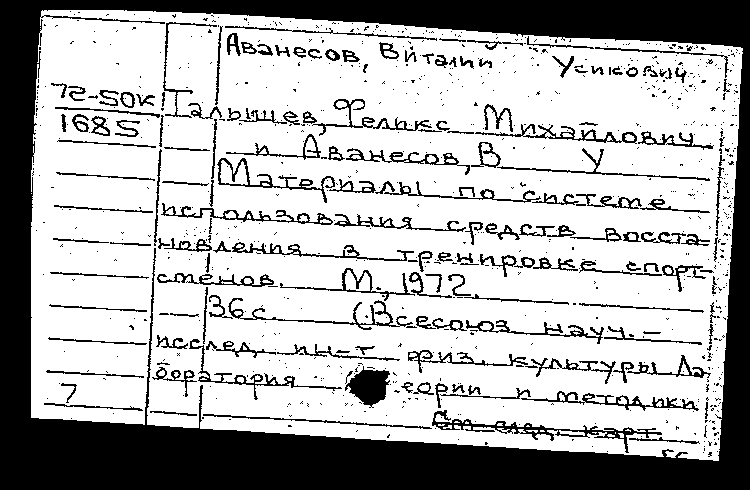 Аванесов, Виталий Усикович
72-50к Талышев, Феликс Михайлович
1685
и Аванесов, В У
Материалы по системе
использования средств восста-
новления в тренировке спорт-
сменов. М., 1972.
36 с. (Всесоюз науч.-
исслед. ин-т физ. культуры Ла-
боратория еории и методики
7
См след. карт.